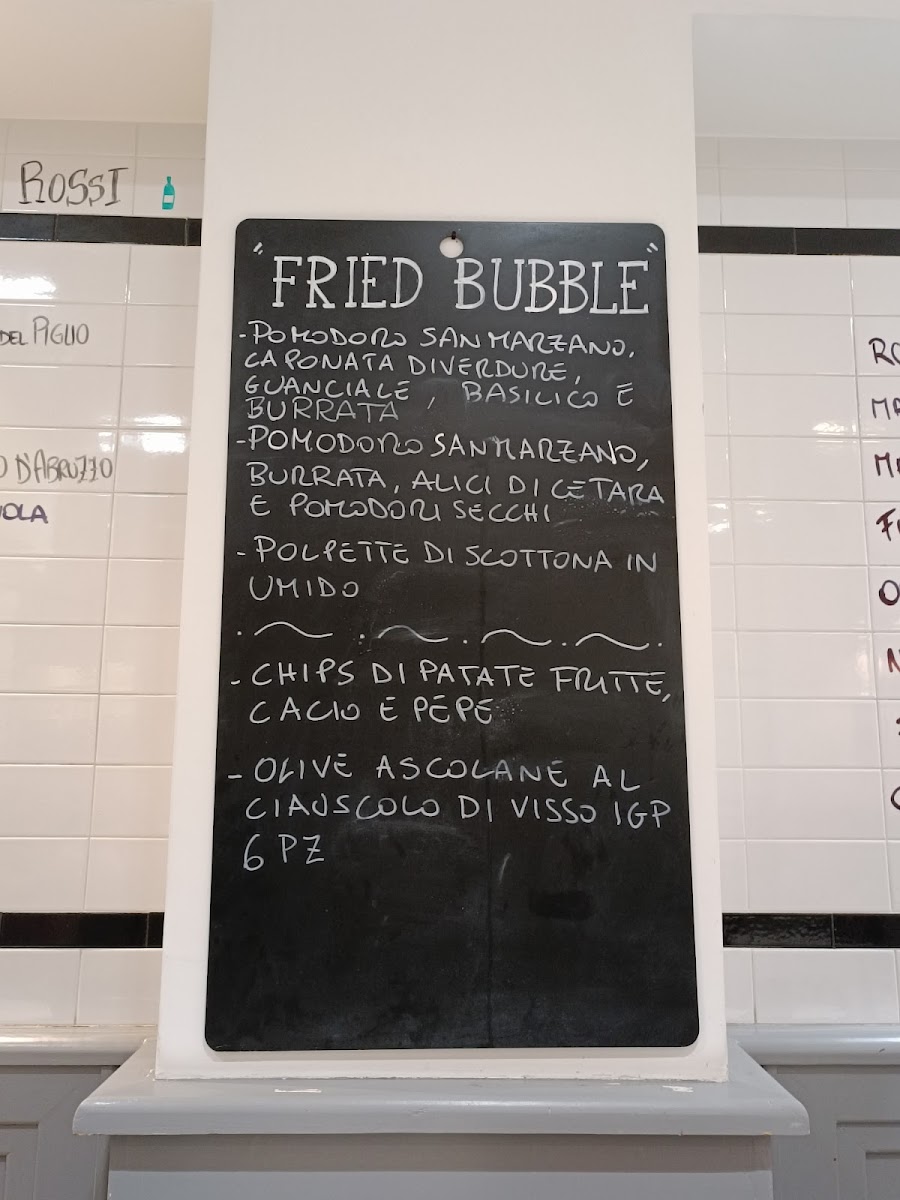 ROSSI
DEL PIGLIO
D'ABRUZZO
"FRIED BUBBLE"
- POMODORO SAN MARZANO,
CAPONATA DI VERDURE,
GUANCIALE, BASILICO E
BURRATA
- POMODORO SAN MARZANO,
BURRATA, ALICI DI CETARA
E POMODORI SECCHI
- POLPETTE DI SCOTTONA IN
UMIDO
- CHIPS DI PATATE FRITTE,
CACIO E PEPE
- OLIVE ASCOLANE AL
CIAUSCOLO DI VISSO IGP
6 PZ